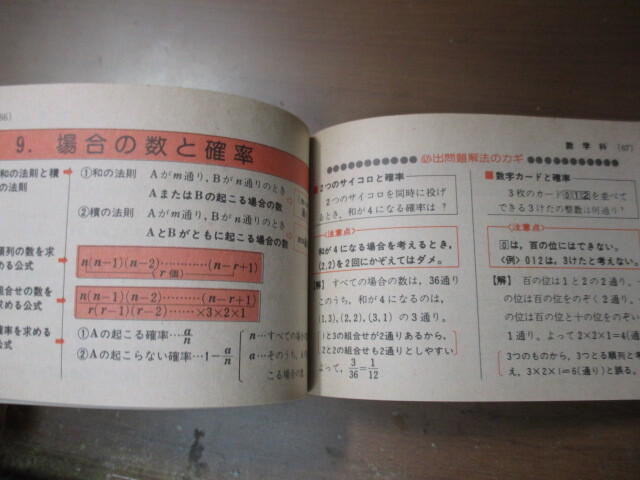 66)
9. 場合の数と確率
和の法則と積
の法則
①和の法則 Aがm通り, Bがn通りのとき
AまたはBの起こる場合の数
②積の法則 Aがm通り, Bがn通りのとき
AとBがともに起こる場合の数
順列の数を求
める公式
n(n−1)(n−2)…………(n−r+1)
(r個)
組合せの数を
求める公式
n(n−1)(n−2)…………(n−r+1)
r(r−1)(r−2)……×3×2×1
確率を求める
公式
①Aの起こる確率…a/n
②Aの起こらない確率…1−a/n
n…すべての場合の
a…そのうち,
こる場合の
数学科 (67)
出問題解法のカギ
■2つのサイコロと確率
2つのサイコロを同時に投げ
るとき, 和が4になる確率は?
〈注意点〉
和が4になる場合を考えるとき,
(2,2)を2回にかぞえてはダメ。
【解】 すべての場合の数は, 36通り
このうち, 和が4になるのは,
(1,3),(2,2),(3,1) の3通り。
1と3の組合せが2通りあるから,
2と2の組合せも2通りとしやすい
よって, 3/36=1/12
■数字カードと確率
3枚のカード0 1 2を並べて
できる3けたの整数は何通り?
〈注意点〉
0は, 百の位にはできない。
〈例〉012は, 3けたと考えない。
【解】 百の位は1と2の
の位は百の位をのぞく2通り,
の位は百の位と十の位をのぞい
1通り。よって2×2×1=4(通
3つのものから, 3つとる順列と考
え, 3×2×1=6(通り)と誤る。